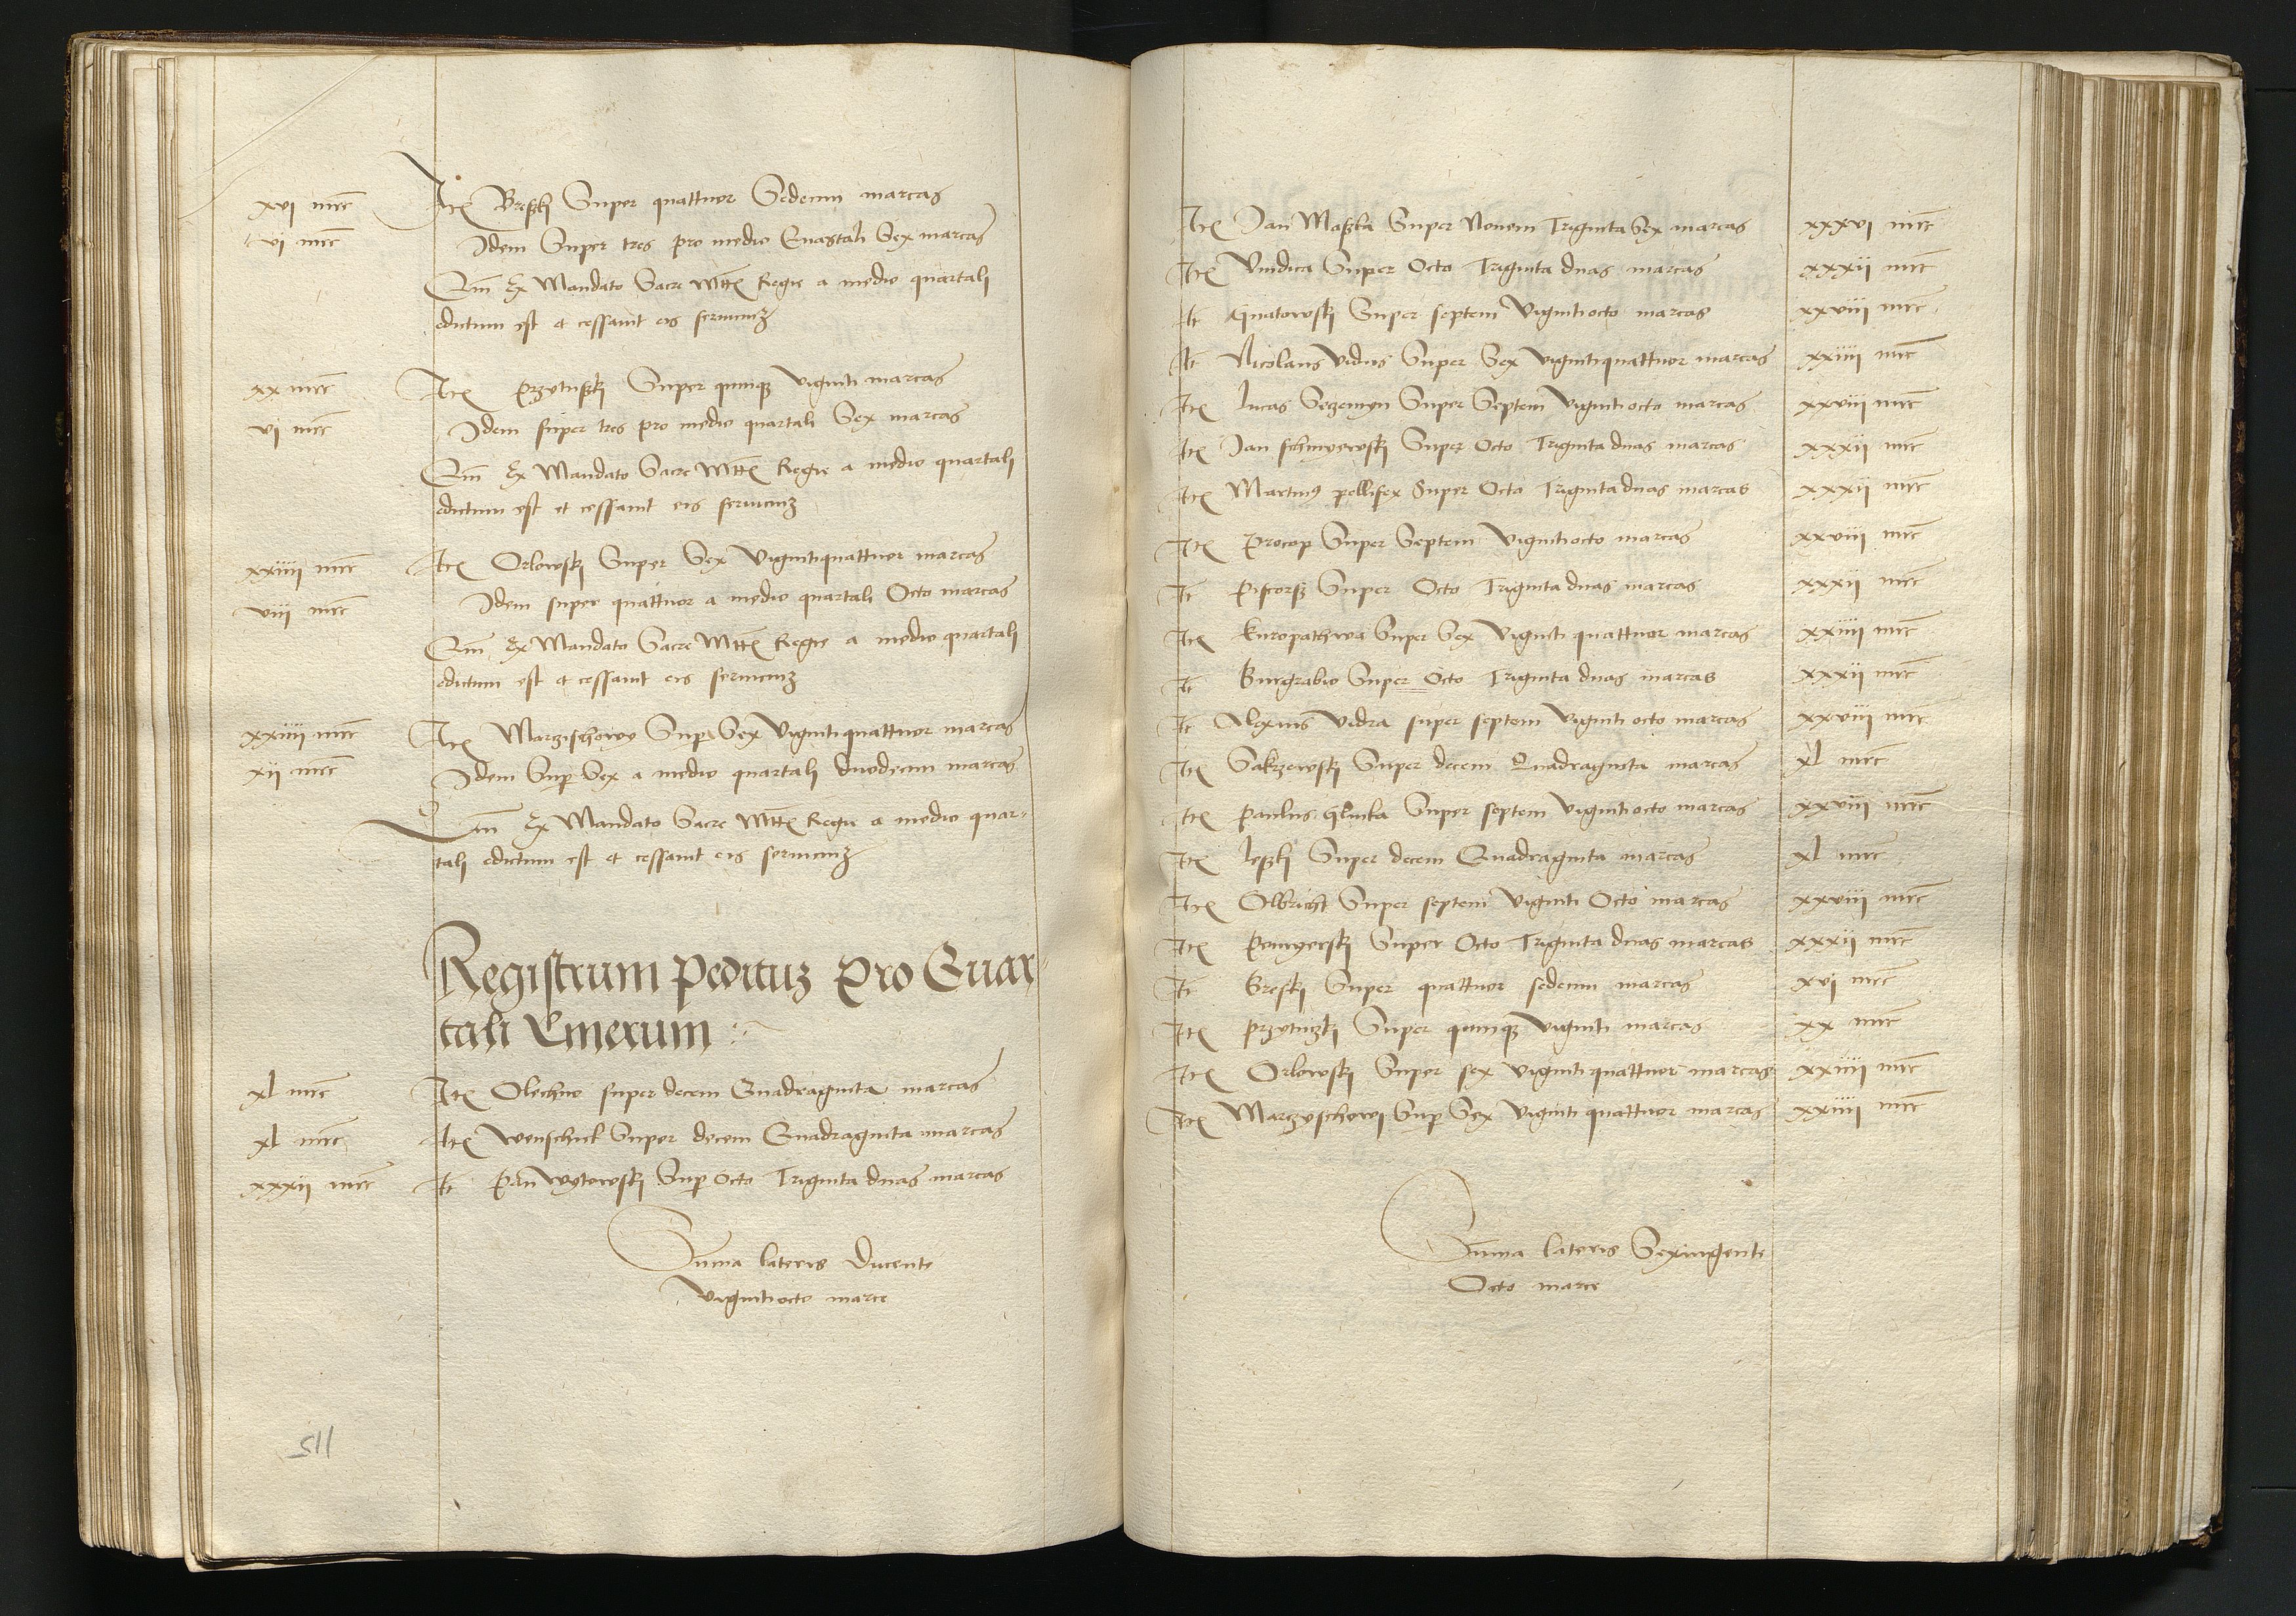 xvi mrc Ite Breszki Super quattuor Sedecim marcas
vi mrc Idem Super tres pro medio Quartali Sex marcas
Qm Ex Mandato Sacre Mtte Regie a medio quartali
edictum est et cessavit eis serviciuz
xx mrc Ite przytuszki Super quinqz viginti marcas
vi mrc Idem super tres pro medio quartali Sex marcas
Qm Ex Mandato Sacre Mtte Regie a medio quartali
edictum est et cessavit eis serviciuz
xxiiii mrc Ite Orlowski Super Sex Vigintiquattuor marcas
viii mrc Idem super quattuor a medio quartali Octo marcas
Qm Ex Mandato Sacre Mtte Regie a medio quartali
edictum est et cessavit eis serviciuz
xxiiii mrc Ite Marczischewy Sup Sex Vigintiquattuor marcas
xii mrc Idem Sup Sex a medio quartali duodecim marcas
Qm Ex Mandato Sacre Mtte Regie a medio quar-
tali edictum est et cessavit eis serviciuz
Registrum pedituz Pro Quar-
tali Cinerum
xl mrc Ite Olechno super decem Quadraginta marcas
xl mrc Ite Wenschik Super decem Quadraginta marcas
xxxii mrc It Pan wytowski Sup Octo Triginta duas marcas
Suma lateris Ducente
Viginti octo marce
115
Ite Jan Maszka Super Novem Triginta Sex marcas xxxvi mrc
Ite Vindica Super Octo Triginta duas marcas xxxii mrc
It Gnatowski Super septem Viginti octo marcas xxviii mrc
It Nicolaus Vidus Super Sex vigintiquattuor marcas xxiiii mrc
Ite lucas Seczemyn Super Septem Viginti octo marcas xxviii mrc
Ite Jan schmyewski Super Octo Triginta duas marcas xxxii mrc
Ite Martin9 pellifex Super Octo Triginta duas marcas xxxii mrc
Ite Procop Super Septem Viginti octo marcas xxviii mrc
It Piscorsz Super Octo Triginta duas marcas xxxii mrc
Ite kuropathwa Super Sex Viginti quattuor marcas xxiiii mrc
It Burgrabio Super Octo Triginta duas marcas xxxii mrc
It Alexius Vidra super septem Viginti octo marcas xxviii mrc
Ite Sakrzewski Super decem Quadraginta marcas xl mrc
Ite Paulus glinka Super septem Viginti octo marcas xxviii mrc
Ite leszki Super decem Quadraginta marcas xl mrc
Ite Olbricht Super septem Viginti Octo marcas xxviii mrc
Ite Pomyerski Super Octo Triginta duas marcas xxxii mrc
It Breski Super quattuor sedecim marcas xvi mrc
Ite przytuczki Super quinqz Viginti marcas xx mrc
Ite Orlowski Super sex Viginti quattuor marcas xxiiii mrc
Ite Marczyschewi Sup Sex Viginti quattuor marcas xxiiii mrc
Suma lateris Sexingente
Octo marce